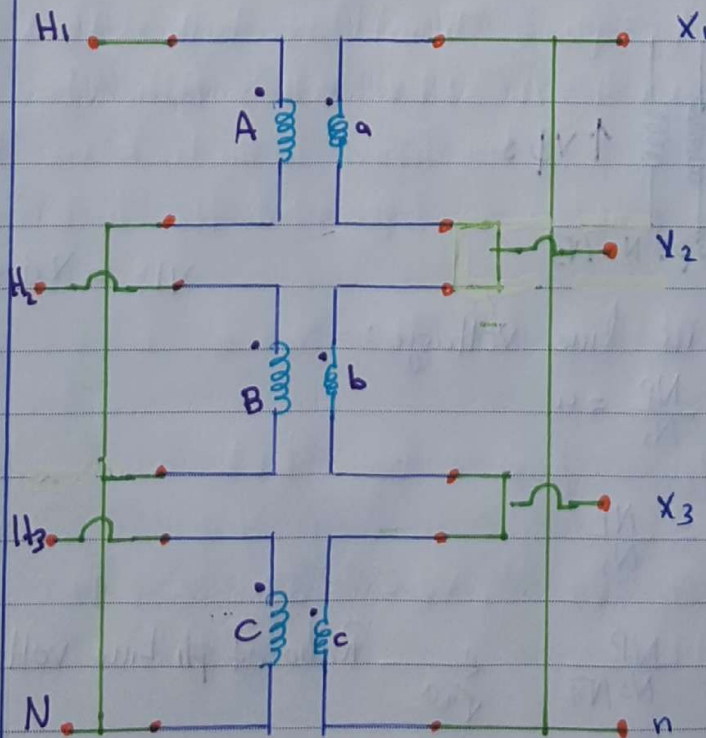 H1 X1
A a
X2
H2
B b
X3
H3
C c
N n